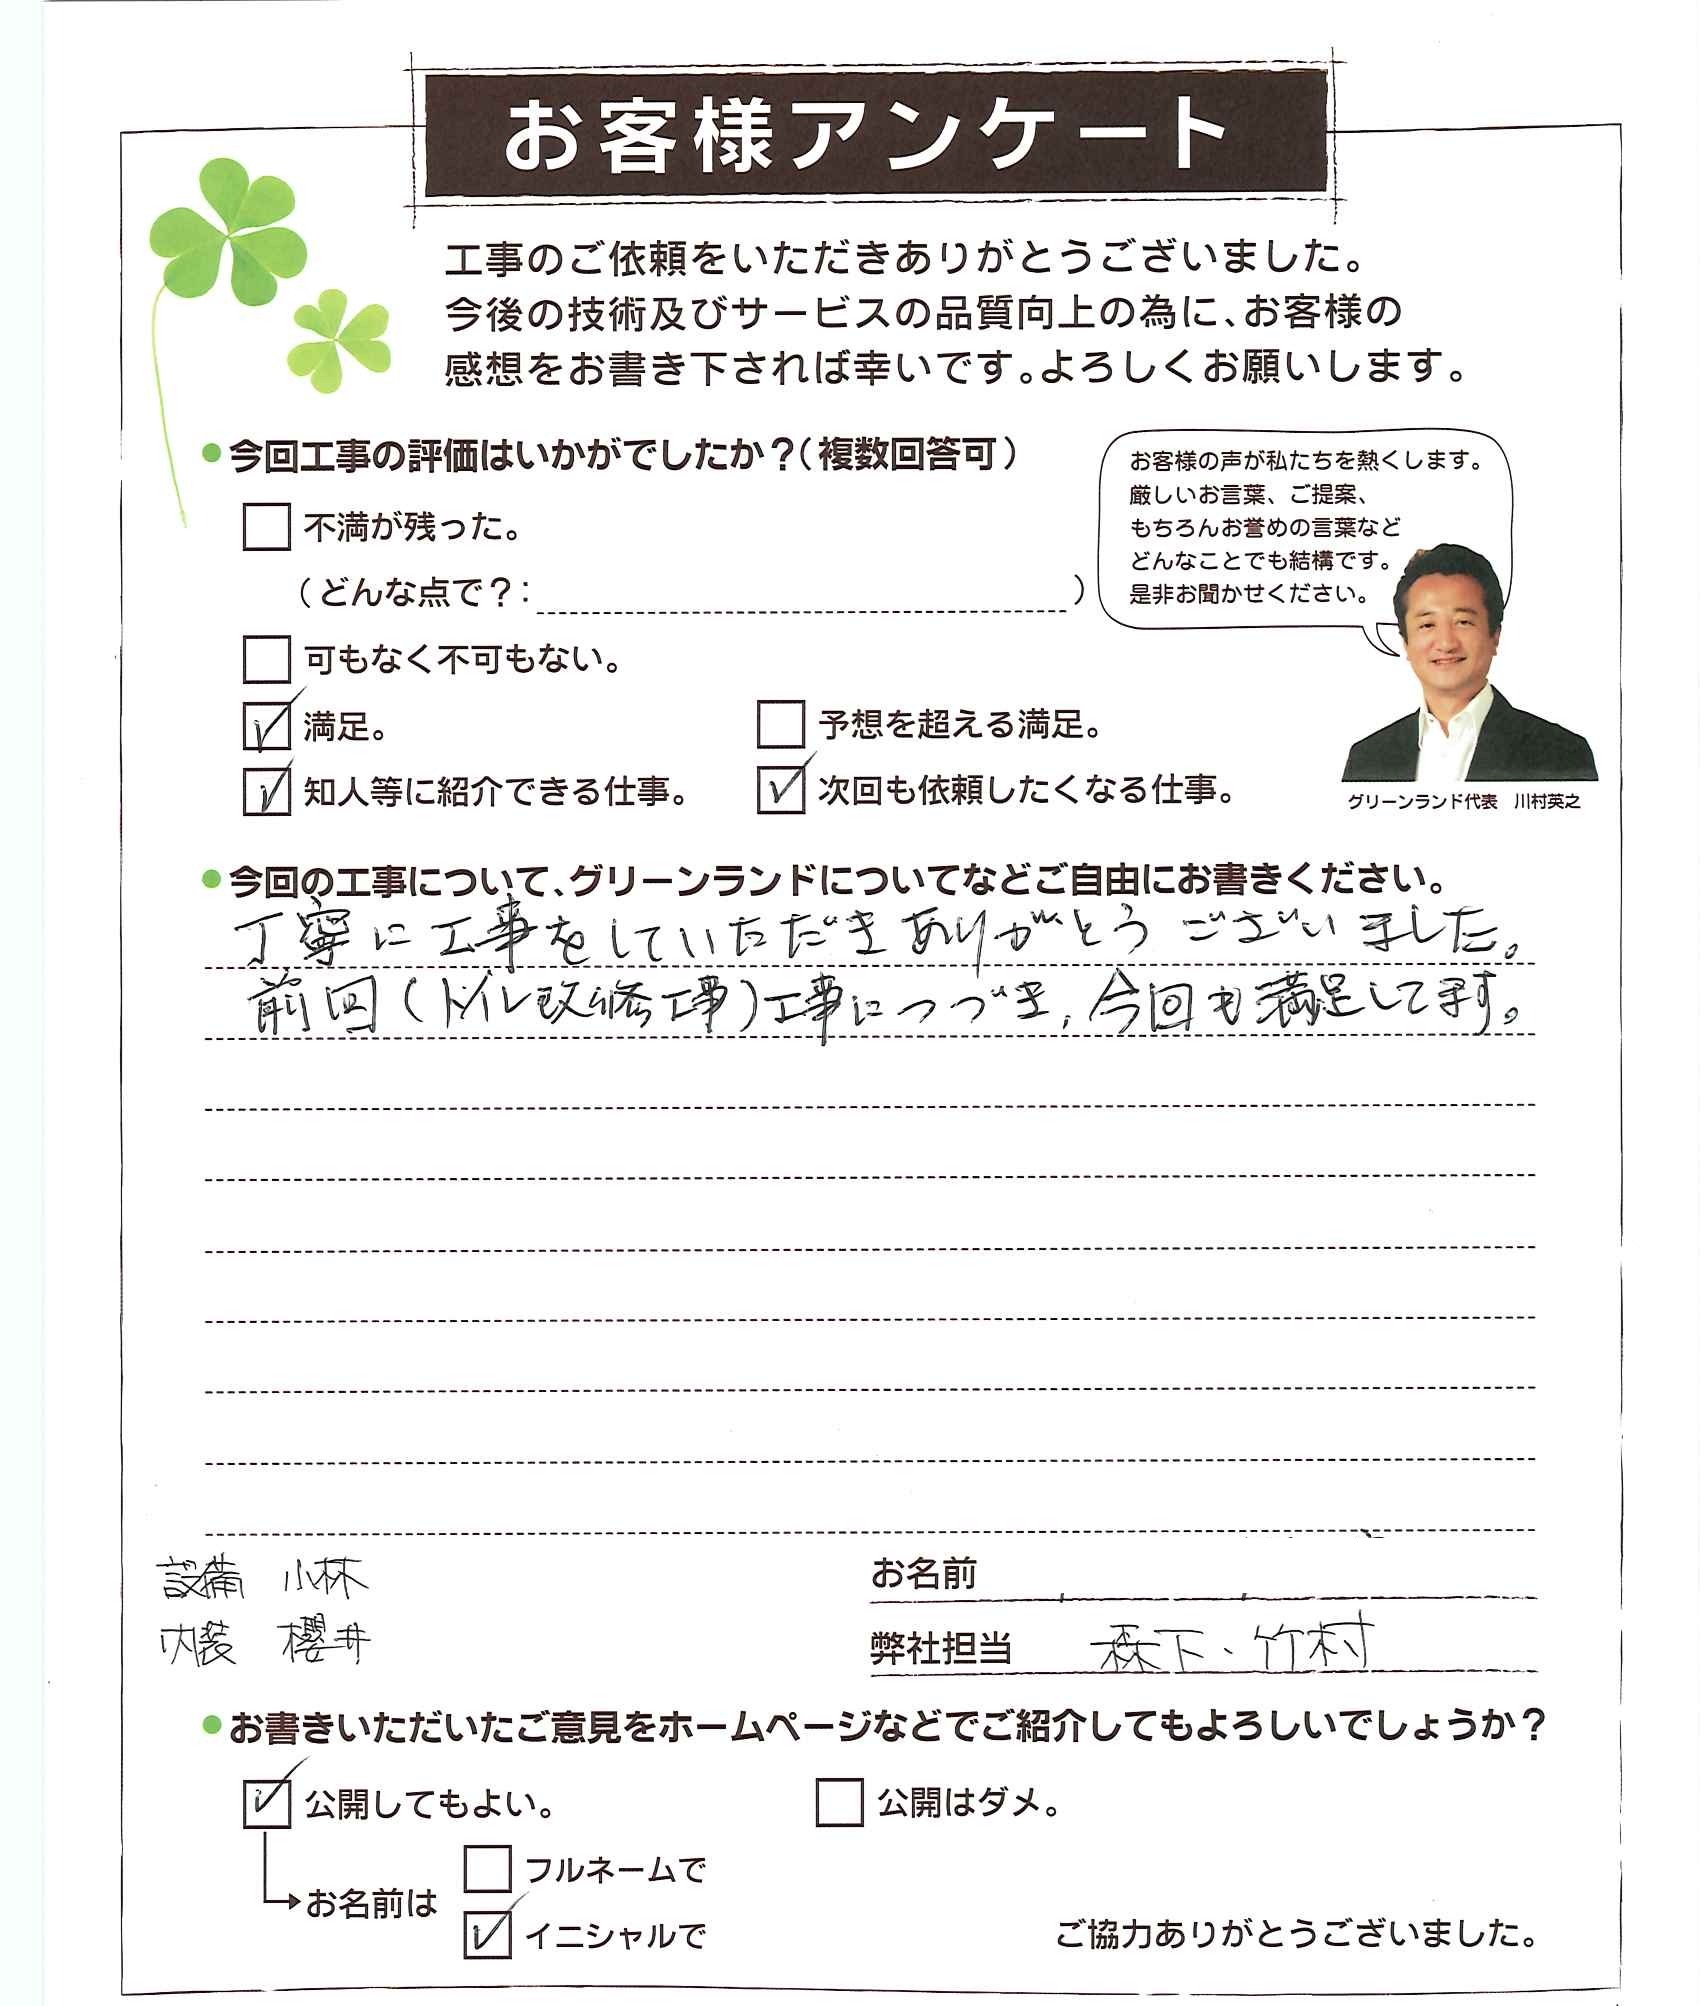 お客様アンケート
工事のご依頼をいただきありがとうございました。
今後の技術及びサービスの品質向上の為に、お客様の
感想をお書き下されば幸いです。よろしくお願いします。
●今回工事の評価はいかがでしたか？（複数回答可）
不満が残った。
（どんな点で？：　　　）
可もなく不可もない。
満足。
予想を超える満足。
知人等に紹介できる仕事。
次回も依頼したくなる仕事。
お客様の声が私たちを熱くします。
厳しいお言葉、ご提案、
もちろんお誉めの言葉など
どんなことでも結構です。
是非お聞かせください。
グリーンランド代表　川村英之
●今回の工事について、グリーンランドについてなどご自由にお書きください。
丁寧に工事をしていただきありがとうございました。
前回（トイレ改修工事）工事につづき、今回も満足してます。
設備　小林
内装　櫻井
お名前
弊社担当　森下、竹村
●お書きいただいたご意見をホームページなどでご紹介してもよろしいでしょうか？
公開してもよい。
公開はダメ。
お名前は
フルネームで
イニシャルで
ご協力ありがとうございました。